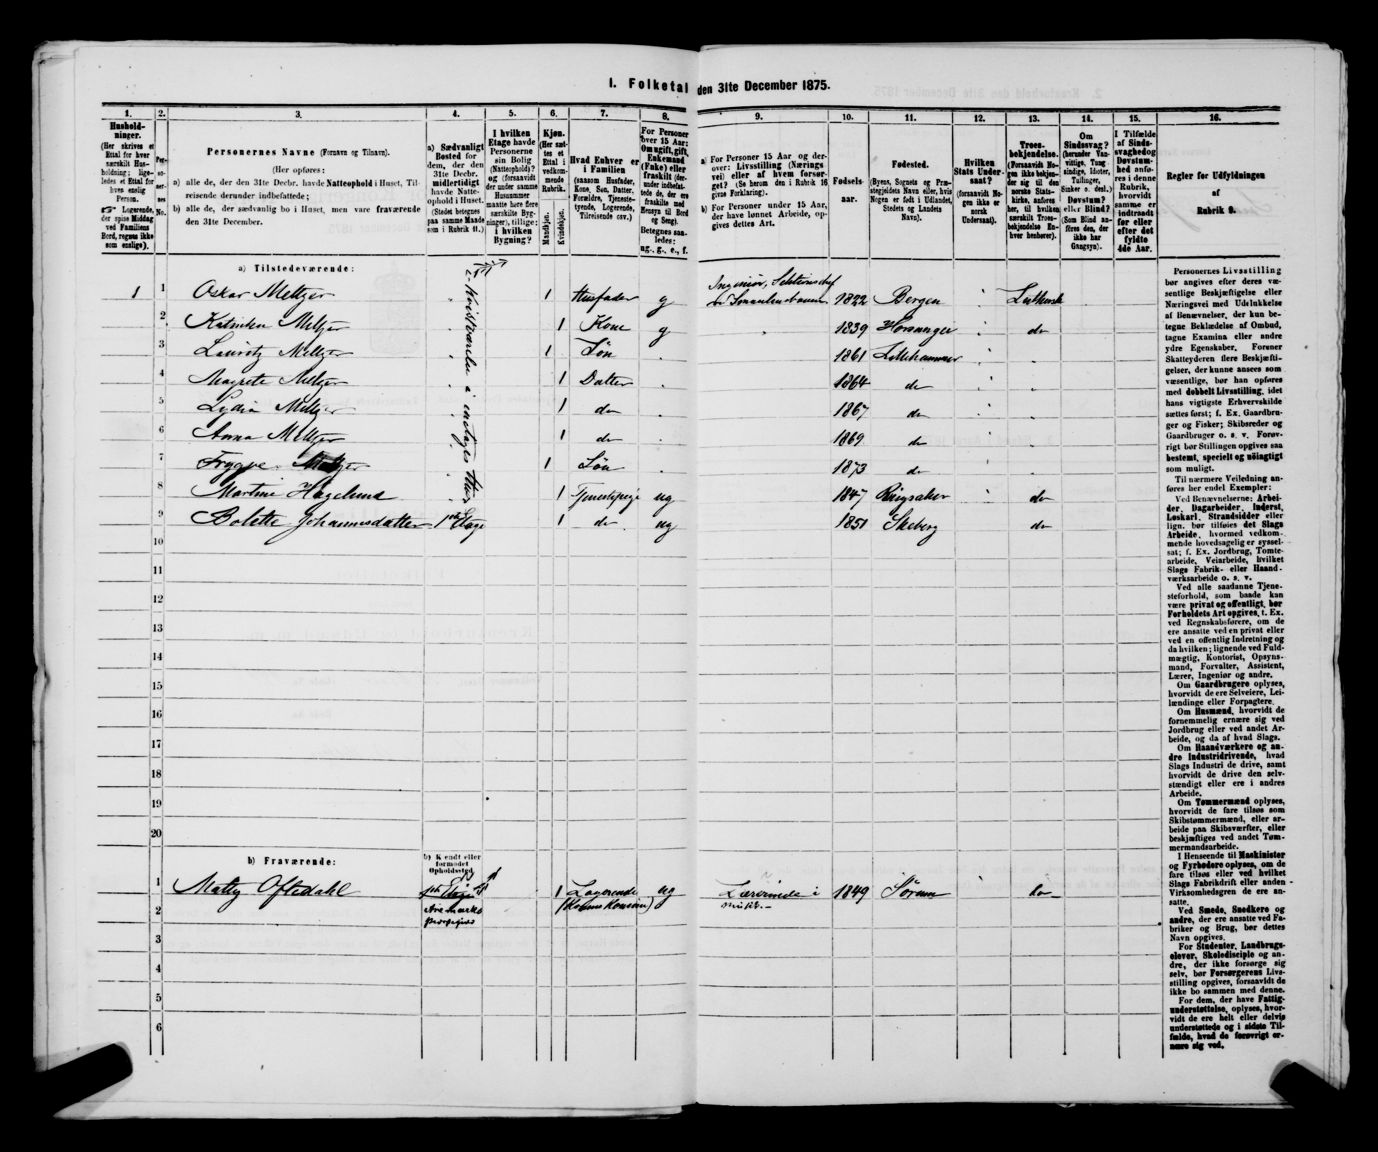 I. Folketal den 31te December 1875.
1. 2. 3. 4. 5. 6. 7. 8. 9. 10. 11. 12. 13. 14. 15. 16.
Hushold-
ninger.
(Her skrives et
Ettal for hver
særskilt Hus-
holdning; lige-
ledes et Ettal for
hver enslig
Person.
Logerende,
der spise Middag
ved Familiens
Bord, regnes ikke
som enslige).
Per-
so-
ner-
nes
No.
Personernes Navne (Fornavn og Tilnavn).
(Her opføres:
a) alle de, der den 31te Decbr. havde Natteophold i Huset, Til-
reisende derunder indbefattede;
b) alle de, der sædvanlig bo i Huset, men vare fraværende
den 31te December.
a) Sædvanligt
Bosted for
dem, der den
31te Decbr.
midlertidigt
havde Natte-
ophold i Huset.
(Stedet betegnes
paa samme Maade
som i Rubrik 11.)
I hvilken
Etage havde
Personerne
sin Bolig
(Natteophold)?
og (forsaavidt
der under samme
Husnummer
maatte høre flere
særskilte Byg-
ninger), tillige:
i hvilken
Bygning?
Kjøn.
(Her sæt-
tes et
Ettal i
vedkom-
mende
Rubrik.
Mandkjøn.
Kvindekjøn.
Hvad Enhver er
i Familien
(saasom Husfader,
Kone, Søn, Datter,
Forældre, Tjeneste-
tyende, Logerende,
Tilreisende osv.)
For Personer
over 15 Aar:
Om ugift, gift,
Enkemand
(Enke) eller
fraskilt (der-
under indbefat-
tede de, der ere
fraskilte med
Hensyn til Bord
og Seng).
Betegnes saa-
ledes:
ug., g., e., f.
a) For Personer 15 Aar og der-
over: Livsstilling (Nærings-
vei) eller af hvem forsør-
get? (Se herom den i Rubrik 16
givne Forklaring).
b) For Personer under 15 Aar,
der have lønnet Arbeide, op-
gives dettes Art.
Fødsels-
aar.
Fødested.
(Byens, Sognets og Præ-
stegjeldets Navn eller, hvis
Nogen er født i Udlandet,
Stedets og Landets
Navn).
Hvilken
Stats Under-
saat?
(forsaavidt No-
gen ikke er
norsk
Undersaat).
Troes-
bekjendelse.
(Forsaavidt No-
gen ikke bekjen-
der sig til den
norske Stats-
kirke, anføres
her, til hvilken
særskilt Troes-
bekjendelse En-
hver henhører).
Om
Sindssvag?
(herunder Van-
vittige, Tung-
sindige, Idioter,
Tullinger,
Sinker o. desl.)
Døvstum?
eller Blind?
Som Blind an-
føres den, der
ikke har
Gangsyn).
I Tilfælde
af Sinds-
svaghed og
Døvstum-
hed anfø-
res i denne
Rubrik,
hvorvidt
samme er
indtraadt
før eller
efter det
fyldte
4de Aar.
Regler for Udfyldningen
af
Rubrik 9.
a) Tilstedeværende:
1 1 Oskar Meltzer 1 Husfader g Ingeniør, Sektionschef 1822 Bergen Luthersk
2 Meltzer 1 Kone g 1839 do
3 Lauritz Meltzer 1 Søn 1861 Lillehammer
4 Magrete Meltzer 1 Datter 1864 do
5 Lydia Meltzer 1 do 1867 do
6 Anna Meltzer 1 do 1869 do
7 Tryggve Meltzer 1 Søn 1873 do
8 Martine Hagelund 1 Tjenestepige ug 1847 Ringsaker do
9 Bolette Johannesdatter 1ste Etage 1 do ug 1851 Skeberg do
10
11
12
13
14
15
16
17
18
19
20
b) Fraværende:
b) Kjendt eller
formodet
Opholdssted.
1 Oftedahl 1 Logerende ug Lærerinde i 1849 Sørum do
2
3
4
5
6
Personernes Livsstilling
bør angives efter deres væ-
sentlige Beskjæftigelse eller
Næringsvei med Udelukkelse
af Benævnelser, der kun be-
tegne Beklædelse af Ombud,
tagne Examina eller andre
ydre Egenskaber. Forener
Skatteyderen flere Beskjæfti-
gelser, der kunne ansees som
væsentlige, bør han opføres
med dobbelt Livsstilling, idet
hans vigtigste Erhvervskilde
sættes først; f. Ex. Gaardbru-
ger og Fisker; Skibsreder og
Gaardbruger o. s. v. Forøv-
rigt bør Stillingen opgives saa
bestemt, specielt og nøiagtigt
som muligt.
Til nærmere Veiledning an-
føres her endel Exempler:
Ved Benævnelserne: Arbei-
der, Dagarbeider, Inderst,
Løskarl, Strandsidder eller
lign. bør tilføies det Slags
Arbeide, hvormed vedkom-
mende hovedsagelig er syssel-
sat; f. Ex. Jordbrug, Tomte-
arbeide, Veiarbeide, hvilket
Slags Fabrik- eller Haand-
værksarbeide o. s. v.
Ved alle saadanne Tjene-
steforhold, som baade kan
være privat og offentligt, bør
Forholdets Art opgives, f. Ex.
ved Regnskabsførere, om de
ere ansatte ved en privat eller
ved en offentlig Indretning og
da hvilken; lignende ved Fuld-
mægtig, Kontorist, Opsyns-
mand, Forvalter, Assistent,
Lærer, Ingeniør og andre.
Om Gaardbrugere oplyses,
hvorvidt de ere Selveiere, Lei-
lændinge eller Forpagtere.
Om Husmænd, hvorvidt de
fornemmelig ernære sig ved
Jordbrug eller ved andet Ar-
beide, og da af hvad Slags.
Om Haandværkere og an-
dre Industridrivende, hvad
Slags Industri de drive, samt
hvorvidt de drive den selv-
stændigt eller ere i andres
Arbeide.
Om Tømmermænd oplyses,
hvorvidt de fare tilsøs som
Skibstømmermænd, eller ar-
beide paa Skibsværfter, eller
beskjæftiges ved andet Tøm-
mermandsarbeide.
I Henseende til Maskinister
og Fyrbødere oplyses, om de
fare tilsøs eller ved hvilket
Slags Fabrikdrift eller anden
Virksomhedsgren de ere an-
satte.
Ved Smede, Snedkere og
andre, der ere ansatte ved Fa-
briker og Brug, bør dettes
Navn opgives.
For Studenter, Landbrugs-
elever, Skoledisciple og an-
dre, der ikke forsørge sig
selv, bør Forsørgerens Livs-
stilling opgives, forsaavidt de
ikke bo sammen med denne.
For dem, der have Fattig-
understøttelse, oplyses, hvor-
vidt de ere helt eller delvis
understøttede og i sidste Til-
fælde, hvad de forøvrigt er-
nære sig ved.